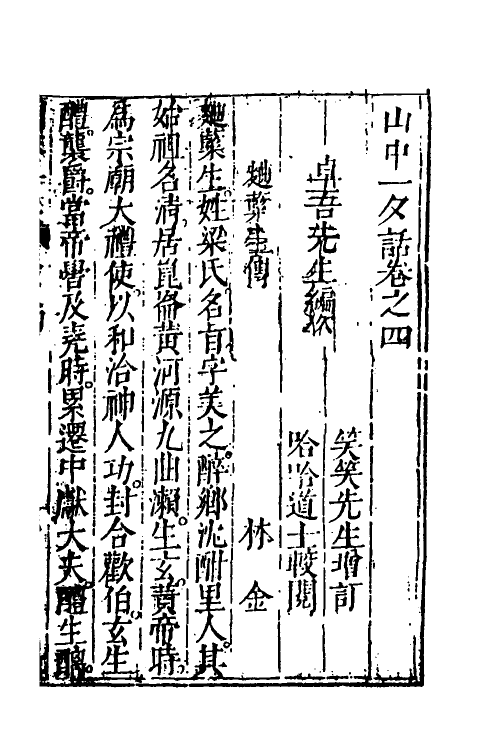 山中一夕話卷之四
卓吾先生編次
笑笑先生增訂
哈哈道士較閱
麯蘖生傳
林金
麯蘖生。姓梁氏。名旨。字美之。醉鄉沈酣里人。其
始祖名清。居崑崙黃河源九曲瀨。生玄。黃帝時。
為宗廟大禮使。以和洽神人功。封合歡伯。玄生
醴。襲爵。當帝嚳及堯時。累遷中獻大夫。醴生醲。